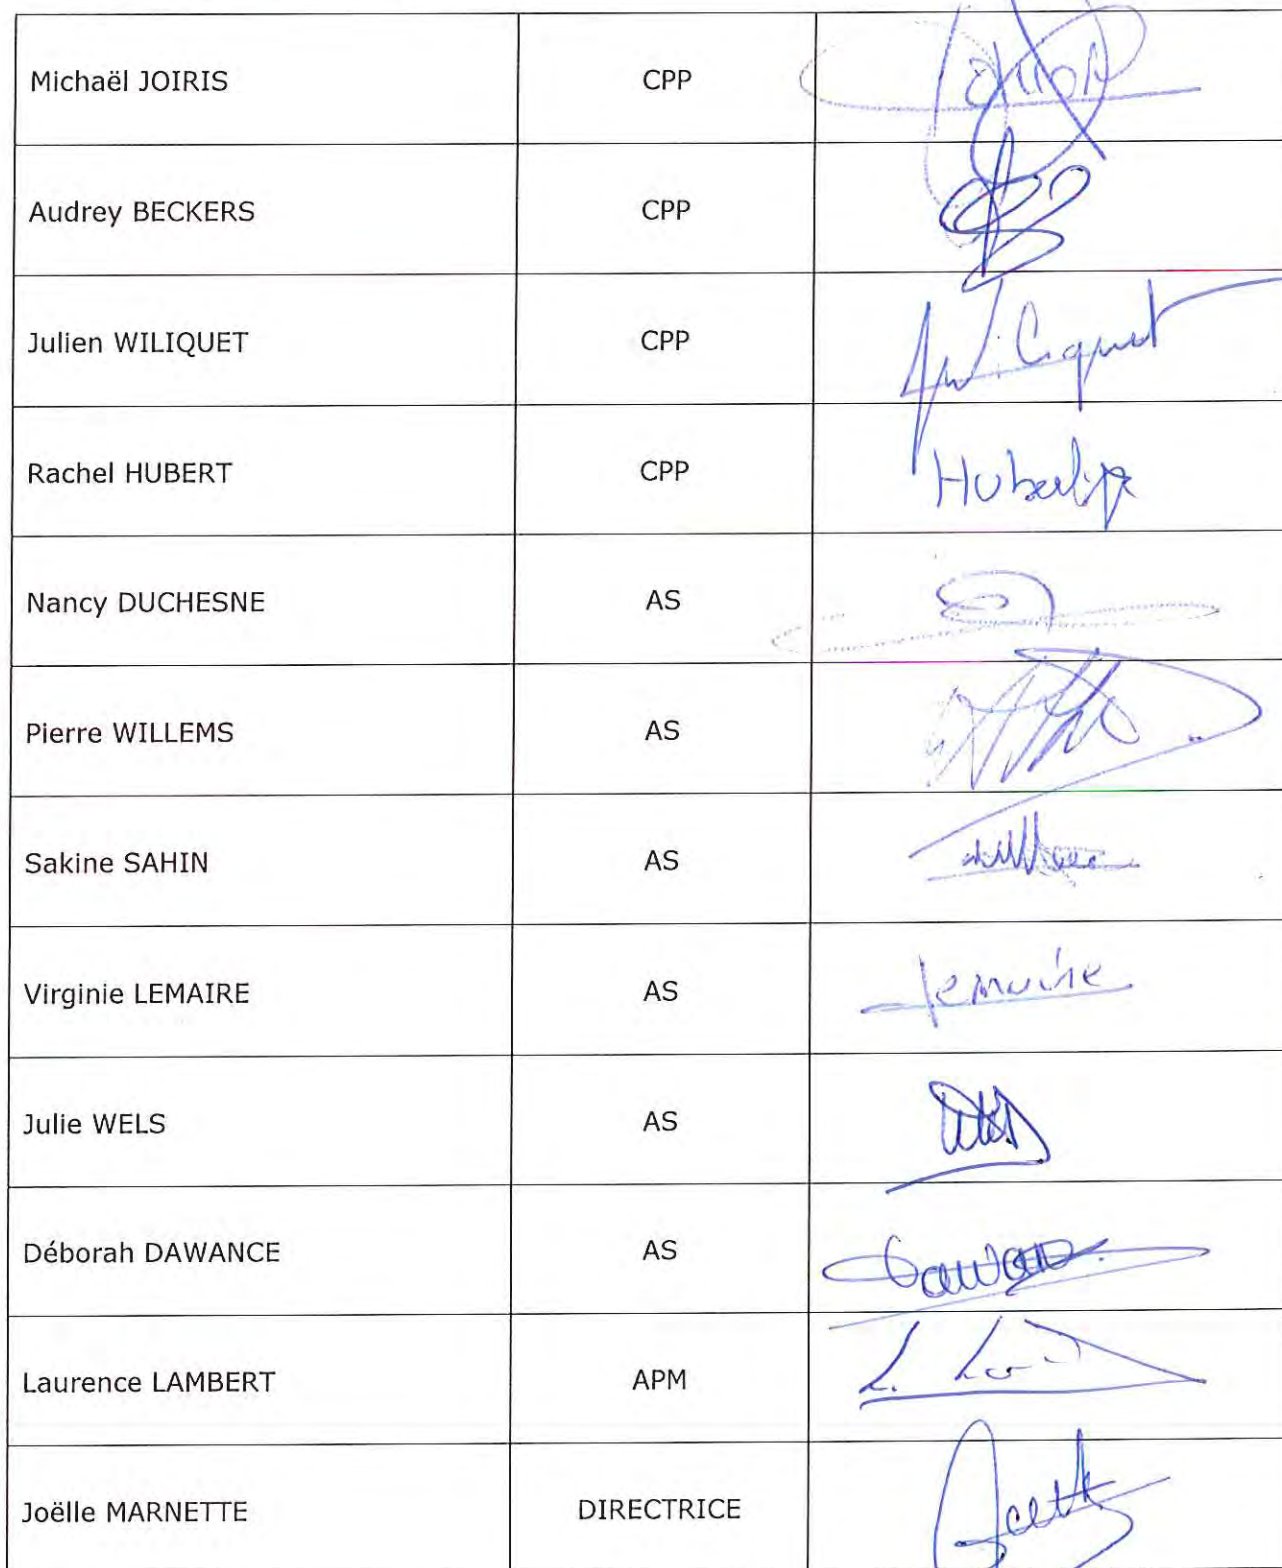 Michaël JOIRIS CPP
Audrey BECKERS CPP
Julien WILIQUET CPP
Rachel HUBERT CPP
Nancy DUCHESNE AS
Pierre WILLEMS AS
Sakine SAHIN AS
Virginie LEMAIRE AS Lemaire
Julie WELS AS
Déborah DAWANCE AS
Laurence LAMBERT APM
Joëlle MARNETTE DIRECTRICE